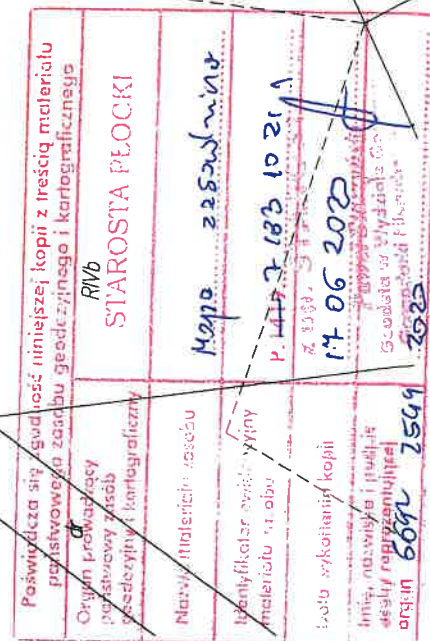 Poświadcza się zgodność niniejszej kopii z treścią materiału
państwowego zasobu geodezyjnego i kartograficznego
Organ prowadzący
państwowy zasób
geodezyjny i kartograficzny
RIVb
dr
STAROSTA PŁOCKI
Nazwa materiału zasobu
Mapa zasadnicza
Identyfikator ewidencyjny
materiału zasobu
P
7 183 10 21
Data wykonania kopii
17 06 2020
Imię, nazwisko i podpis
osoby reprezentującej
organ
Geodeta w Wydziale
6642 2549 2020